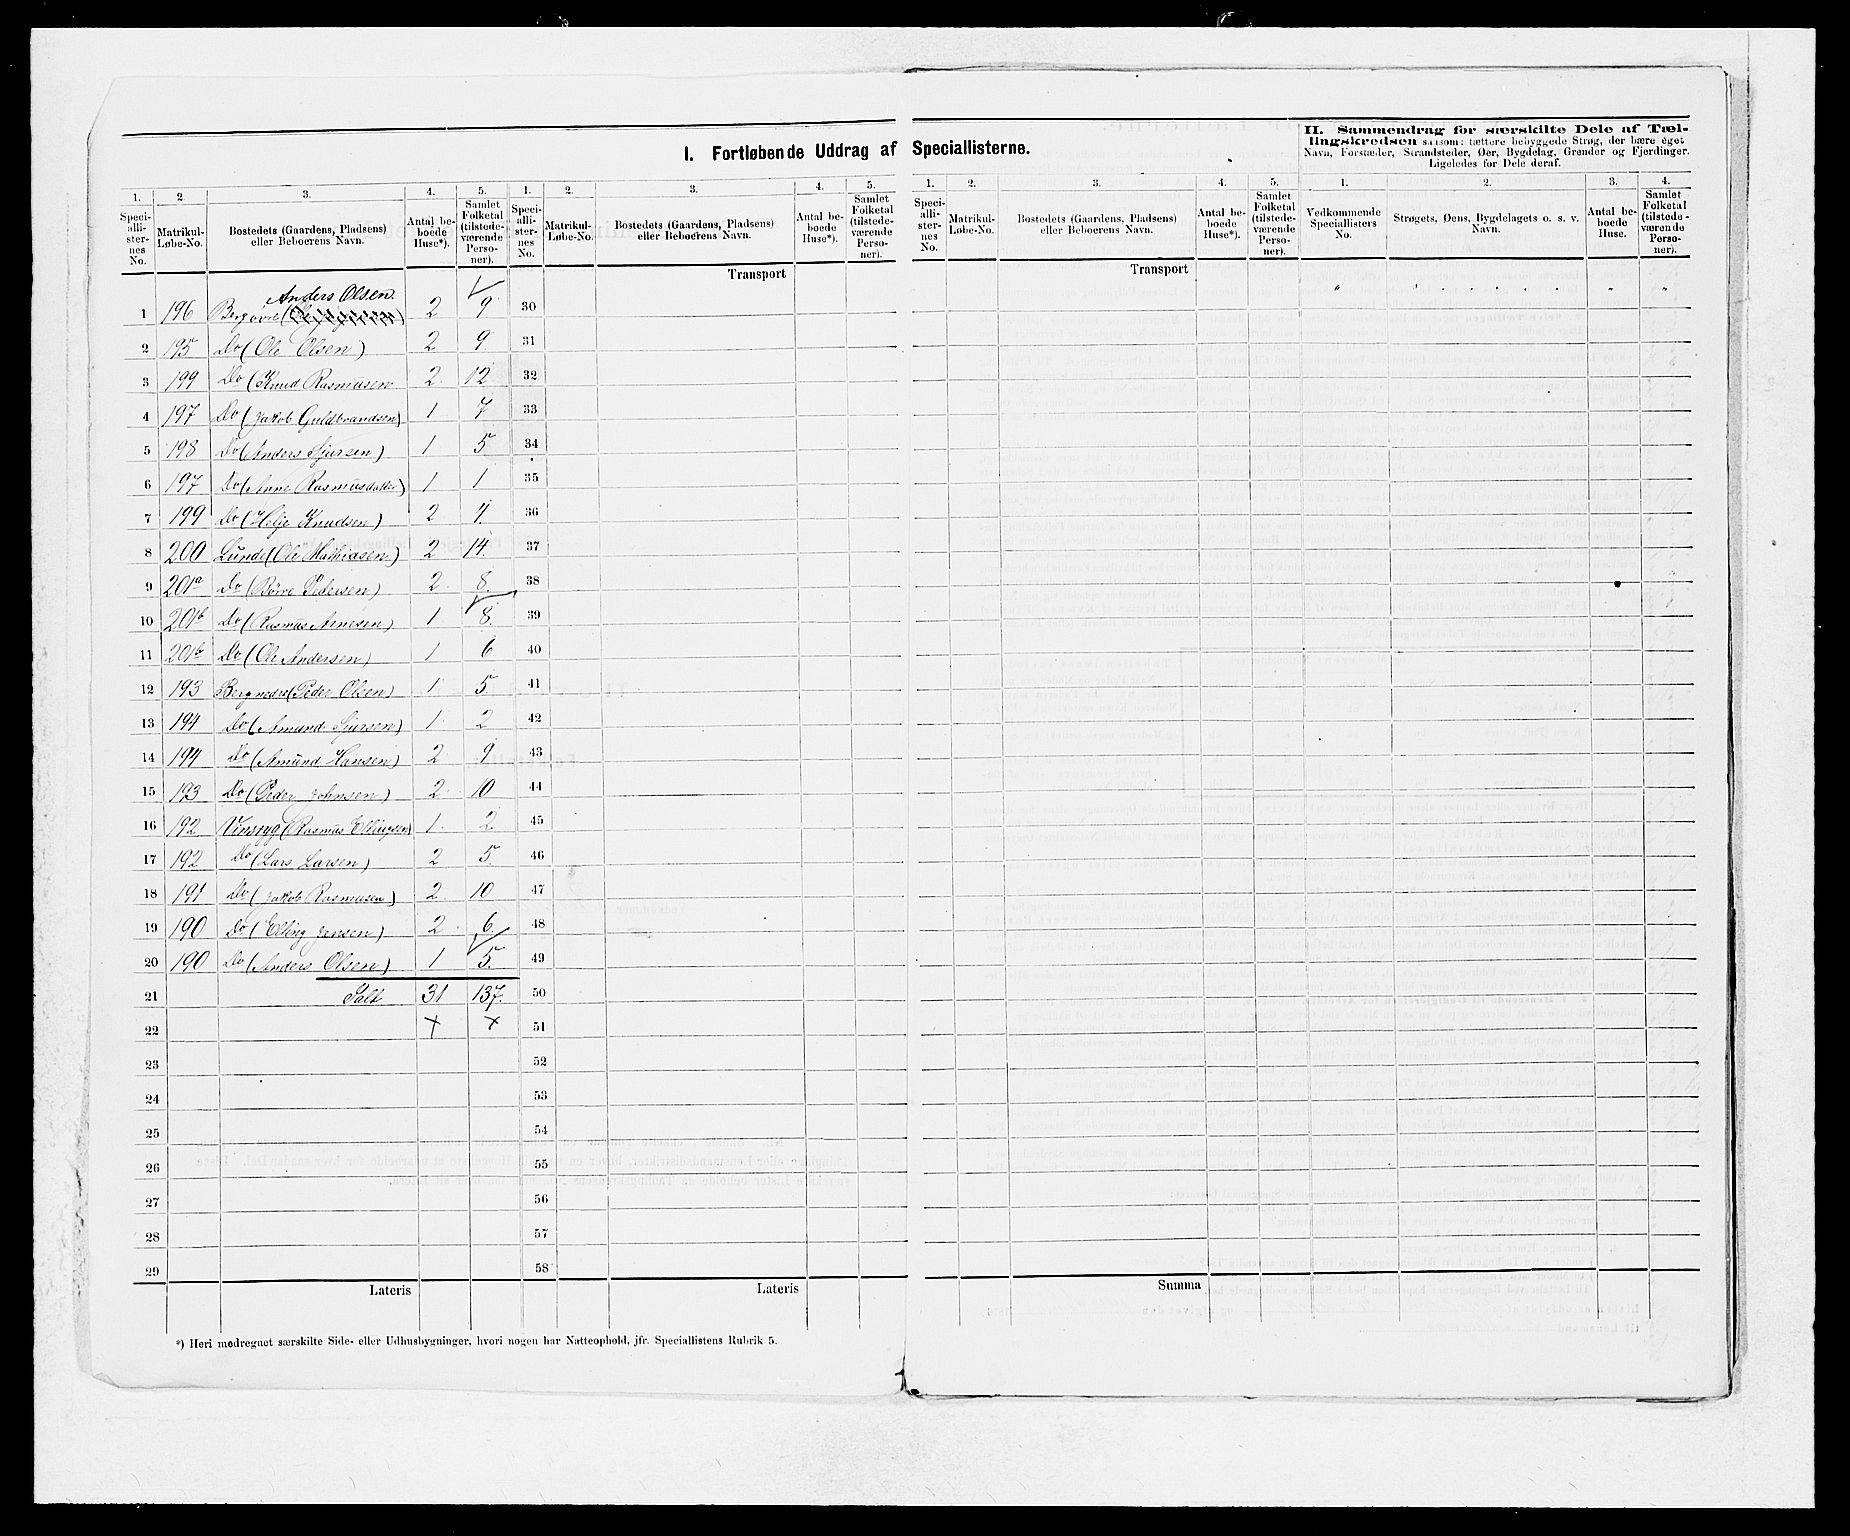 I. Fortløbende Uddrag af Speciallisterne.
II. Sammendrag for særskilte Dele af Tæl-
lingskredsen saasom: tættere bebyggede Strøg, der bære eget
Navn, Forstæder, Strandsteder, Øer, Bygdelag, Grender og Fjerdinger.
Ligeledes for Dele deraf.
1. 2 3. 4. 5. 1. 2. 3. 4. 5. 1. 2. 3. 4. 5. 1. 2. 3. 4.
Speci-alli-ster-nes No. Matrikul-Løbe-No. Bostedets (Gaardens, Pladsens) eller Beboerens Navn. Antal be-boede Huse*). Samlet Folketal (tilstede-værende Perso-ner).
Speci-alli-ster-nes No. Matrikul-Løbe-No. Bostedets (Gaardens, Pladsens) eller Beboerens Navn. Antal be-boede Huse*). Samlet Folketal (tilstede-værende Perso-ner).
Speci-alli-ster-nes No. Matrikul-Løbe-No. Bostedets (Gaardens, Pladsens) eller Beboerens Navn. Antal be-boede Huse*). Samlet Folketal (tilstede-værende Perso-ner).
Vedkommende Speciallisters No. Strøgets, Øens, Bygdelagets o. s. v. Navn. Antal be-boede Huse. Samlet Folketal (tilstede-værende Perso-ner).
Transport Transport
Anders Olsen.
1 196 Berg øvre ( ) 2 9 30
2 195 Do (Ole Olsen) 2 9 31
3 199 Do (Knud Rasmusen 2 12 32
4 197 Do (Jakob Guldbrandsen) 1 7 33
5 198 Do (Anders Sjursen) 1 5 34
6 197 Do (Anne Rasmusdatter) 1 1 35
7 199 Do (Helje Knudsen) 2 4. 36
8 200 Lunde (Ole Mathiasen) 2 14. 37
9 201a Do (Børre Pedersen) 2 8. 38
10 201b Do (Rasmus Arnesen) 1 8. 39
11 201b Do (Ole Andersen) 1 6 40
12 193 Berg nedre (Peder Olsen) 1 5 41
13 194 Do (Amund Sjursen) 1 2 42
14 194 Do (Amund Hansen) 2 9 43
15 193 Do (Peder Johnsen) 2 10 44
16 192 (Rasmus Ellingsen) 1. 2 45
17 192 Do (Lars Larsen) 2 5. 46
18 191 Do (Jakob Rasmusen) 2 10 47
19 190 Do (Elling Jensen) 2 6. 48
20 190 Do (Anders Olsen) 1 5. 49
21 Talt 31 137. 50
22 + + 51
23 52
24 53
25 54
26 55
27 56
28 57
29 58
Lateris Lateris Summa
*) Heri medregnet særskilte Side- eller Udhusbygninger, hvori nogen har Natteophold, jfr. Speciallistens Rubrik 5.